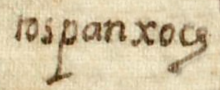 los panxoes